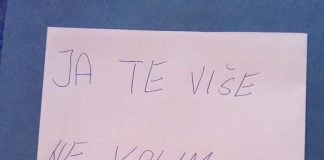 JA TE VIŠE
NE VOLIM